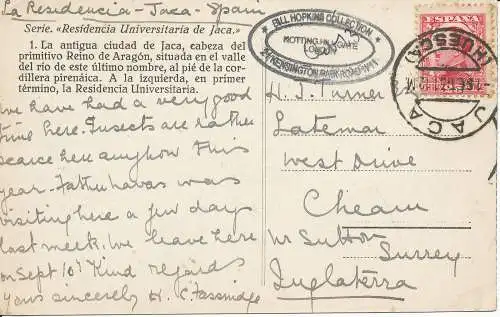 La Residencia - Jaca - Spain
Serie. «Residencia Universitaria de Jaca.»
1. La antigua ciudad de Jaca, cabeza del
primitivo Reino de Aragón, situada en el valle
del río de este último nombre, al pié de la cor-
dillera pirenáica. A la izquierda, en primer
término, la Residencia Universitaria.
We have had a very good
time here. Insects are rather
scarce here anyhow this
year. Father Navas was
visiting here a few days
last week. We leave here
on Sept 10th Kind regards
Yours sincerely
BILL HOPKINS COLLECTION
NOTTING HILL GATE
LONDON
KENSINGTON PARK ROAD W11
ESPAÑA
(HUESCA)
JACA
H. J. Turner
Latemar
West Drive
Cheam
nr Sutton
Surrey
Inglaterra